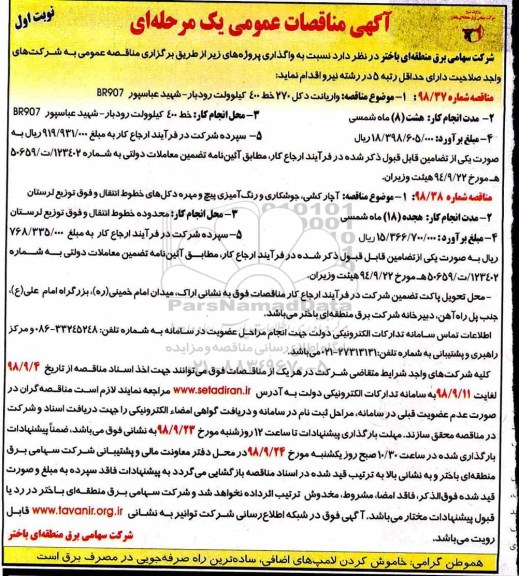 آگهی مناقصات عمومی یک مرحله‌ای
نوبت اول
شرکت سهامی برق منطقه‌ای باختر در نظر دارد نسبت به واگذاری پروژه‌های زیر از طریق برگزاری مناقصه عمومی به شرکت‌های
واجد صلاحیت دارای حداقل رتبه ۵ در رشته نیرو اقدام نماید:
مناقصه شماره ۹۸/۳۷: ۱- موضوع مناقصه: واریانت دکل ۲۷۰ خط ۴۰۰ کیلوولت رودبار-شهید عباسپور BR907
۲- مدت انجام کار: هشت (۸) ماه شمسی ۳- محل انجام کار: خط ۴۰۰ کیلوولت رودبار-شهید عباسپور BR907
۴- مبلغ برآورد: ۱۸/۳۹۸/۶۰۵/۰۰۰ ریال ۵- سپرده شرکت در فرآیند ارجاع کار به مبلغ ۹۱۹/۹۳۱/۰۰۰ ریال به
صورت یکی از تضامین قابل قبول ذکر شده در فرآیند ارجاع کار، مطابق آئین‌نامه تضمین معاملات دولتی به شماره ۱۲۳۴۰۲/ت۵۰۶۵۹
هـ مورخ ۹۴/۹/۲۲ هیئت وزیران.
مناقصه شماره ۹۸/۳۸: ۱- موضوع مناقصه: آچار کشی، جوشکاری و رنگ‌آمیزی پیچ و مهره دکل‌های خطوط انتقال و فوق توزیع لرستان
۲- مدت انجام کار: هجده (۱۸) ماه شمسی ۳- محل انجام کار: محدوده خطوط انتقال و فوق توزیع لرستان
۴- مبلغ برآورد: ۱۵/۳۶۶/۷۰۰/۰۰۰ ریال ۵- سپرده شرکت در فرآیند ارجاع کار به مبلغ ۷۶۸/۳۳۵/۰۰۰
ریال به صورت یکی از تضامین قابل قبول ذکر شده در فرآیند ارجاع کار، مطابق آئین‌نامه تضمین معاملات دولتی به شماره
۱۲۳۴۰۲/ت۵۰۶۵۹هـ مورخ ۹۴/۹/۲۲ هیئت وزیران.
- محل تحویل پاکت تضمین شرکت در فرآیند ارجاع کار مناقصات فوق به نشانی اراک، میدان امام خمینی(ره)، بزرگراه امام علی(ع)،
جنب پل راه‌آهن، دبیرخانه شرکت برق منطقه‌ای باختر می‌باشد.
اطلاعات تماس سامانه تدارکات الکترونیکی دولت جهت انجام مراحل عضویت در سامانه به شماره تلفن: ۳۳۲۴۵۲۴۸-۰۸۶ و مرکز
راهبری و پشتیبانی به شماره تلفن: ۲۷۳۱۳۱۳۱-۰۲۱ می‌باشد.
کلیه شرکت‌های واجد شرایط متقاضی شرکت در هر یک از مناقصات فوق می‌توانند جهت اخذ اسناد مناقصه از تاریخ ۹۸/۹/۴
لغایت ۹۸/۹/۱۱ به سامانه تدارکات الکترونیکی دولت به آدرس www.setadiran.ir مراجعه نمایند لازم است مناقصه‌گران در
صورت عدم عضویت قبلی در سامانه، مراحل ثبت نام در سامانه و دریافت گواهی امضاء الکترونیکی را جهت دریافت اسناد و شرکت
در مناقصه محقق سازند. مهلت بارگذاری پیشنهادات تا ساعت ۱۲ روز شنبه مورخ ۹۸/۹/۲۳ به نشانی فوق می‌باشد، ضمناً پیشنهادات
بارگذاری شده در ساعت ۱۰/۳۰ صبح روز یکشنبه مورخ ۹۸/۹/۲۴ در محل دفتر معاونت مالی و پشتیبانی شرکت سهامی برق
منطقه‌ای باختر و به نشانی بالا به ترتیب قید شده در اسناد مناقصه بازگشایی می‌گردد به پیشنهادات فاقد سپرده به مبلغ و صورت
قید شده فوق‌الذکر، فاقد امضا، مشروط، مخدوش ترتیب اثر داده نخواهد شد و شرکت سهامی برق منطقه‌ای باختر در رد یا
قبول پیشنهادات مختار می‌باشد. آگهی فوق در شبکه اطلاع‌رسانی شرکت توانیر به نشانی www.tavanir.org.ir قابل
رویت می‌باشد.
شرکت سهامی برق منطقه‌ای باختر
هموطن گرامی: خاموش کردن لامپ‌های اضافی، ساده‌ترین راه صرفه‌جویی در مصرف برق است